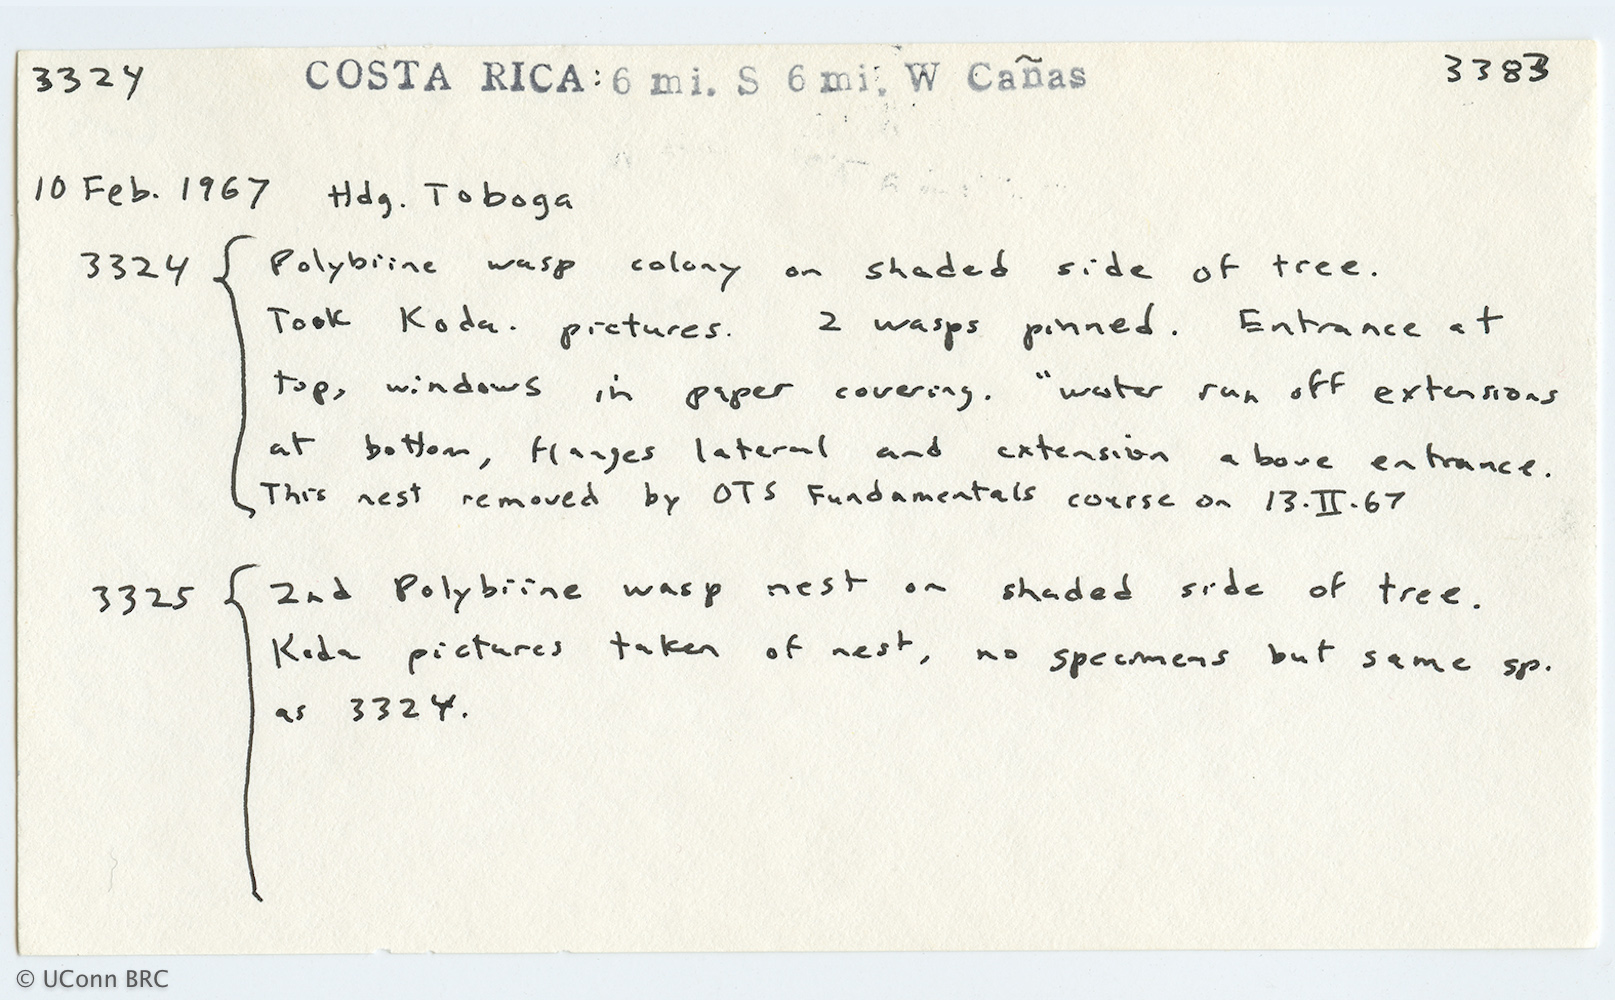 3324 COSTA RICA: 6 mi. S 6 mi. W Cañas 3383
10 Feb. 1967 Hdg. Toboga
3324 { Polybiine wasp colony on shaded side of tree.
Took Koda. pictures. 2 wasps pinned. Entrance at
top, windows in paper covering. "water run off extensions
at bottom, flanges lateral and extension above entrance.
This nest removed by OTS Fundamentals course on 13.II.67
3325 { 2nd Polybiine wasp nest on shaded side of tree.
Koda pictures taken of nest, no specimens but same sp.
as 3324.
© UConn BRC